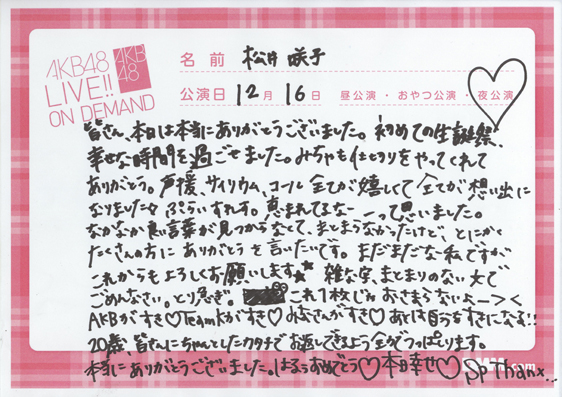 AKB48
LIVE!!
ON DEMAND
AKB
48
名前 松井 咲子
公演日 12月 16日 昼公演・おやつ公演・夜公演
皆さん、本日は本当にありがとうございました。初めての生誕祭、
幸せな時間を過ごせました。みちゃも仕切りをやってくれて
ありがとう。声援、サイリウム、コール 全てが嬉しくて 全てが想い出に
なりました ぷらいすれす。恵まれてるなーーって思いました。
なかなか良い言葉が見つからなくて、まとまらなかったけど、とにかく
たくさんの方に ありがとう を言いたいです。まだまだな私ですが
これからもよろしくお願いします★ 雑な字、まとまりのない文で
ごめんなさい。とり急ぎ。 これ1枚じゃおさまらないよー><
AKBがすき♡TeamKがすき♡みなさんがすき♡あとは自分をすきになる!!
20歳、皆さんにちゃんとしたカタチでお返しできるよう全力でつっぱしります。
本当にありがとうございました。はるぅおめでとう♡本日幸せ♡Sp Thanx...
.com